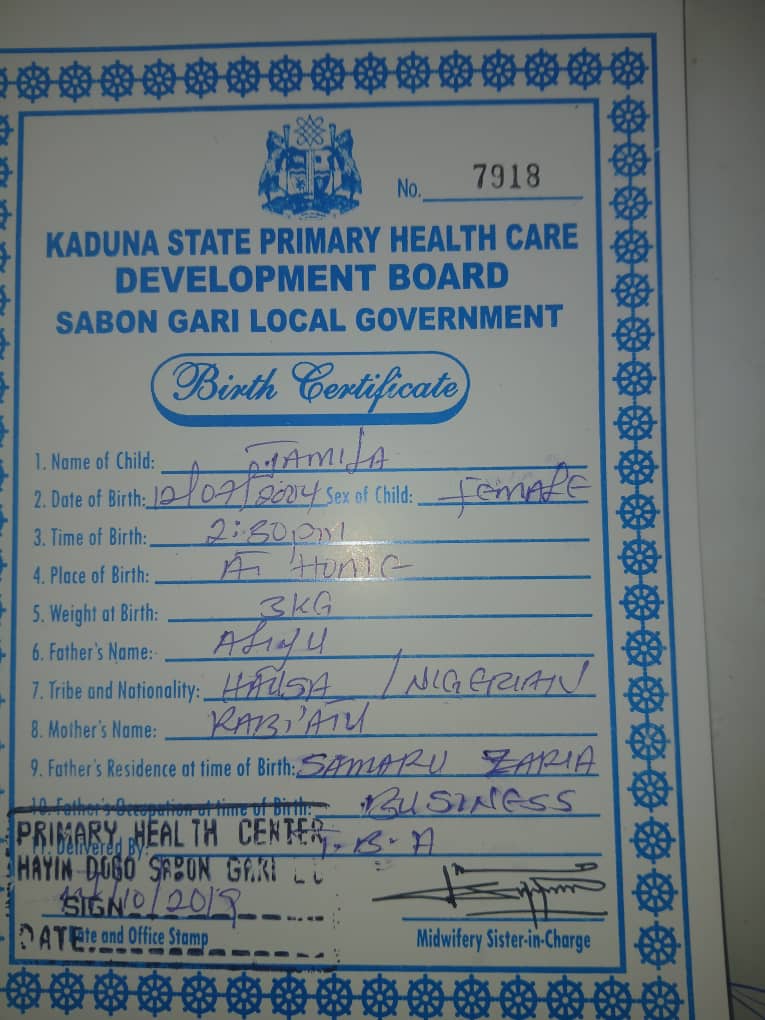 No. 7918
KADUNA STATE PRIMARY HEALTH CARE
DEVELOPMENT BOARD
SABON GARI LOCAL GOVERNMENT
Birth Certificate
1. Name of Child: JAMILA
2. Date of Birth: 12/07/2004 Sex of Child: FEMALE
3. Time of Birth: 2:30pm
4. Place of Birth: AT HOME
5. Weight at Birth: 3KG
6. Father's Name: ALIYU
7. Tribe and Nationality: HAUSA / NIGERIAN
8. Mother's Name: RABI'ATU
9. Father's Residence at time of Birth: SAMARU ZARIA
10. Father's Occupation at time of Birth: BUSINESS
11. Delivered By: T.B.A
PRIMARY HEALTH CENTER
HAYIN DOGO SABON GARI
SIGN /10/2019
DATE
Date and Office Stamp
Midwifery Sister-in-Charge